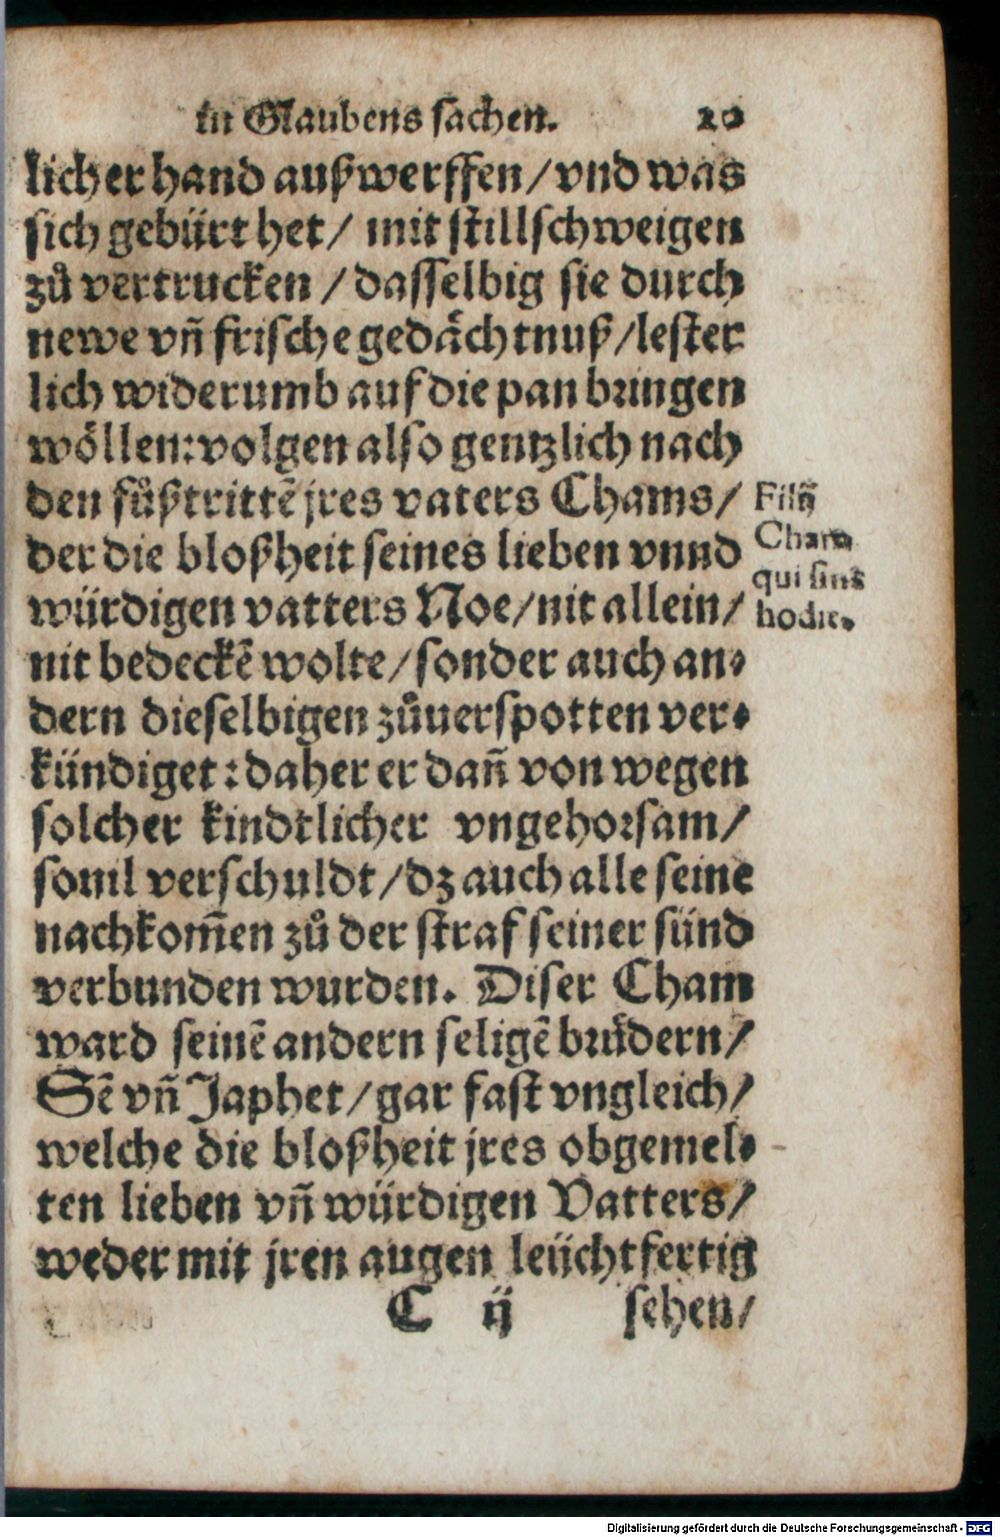 in Glaubens sachen. 20
licher hand außwerffen/vnd was
sich gebürt het/ mit stillschweigen
zů vertrucken /dasselbig sie durch
newe vñ frische gedåchtnuß/lester
lich widerumb auf die pan bringen
wöllen:volgen also gentzlich nach
den fůßtrittẽ jres vaters Chams/
der die bloßheit seines lieben vnnd
würdigen vatters Noe/nit allein/
nit bedeckẽ wolte/sonder auch an-
dern dieselbigen zůuerspotten ver-
kündiget:daher er dañ von wegen
solcher kindtlicher vngehorsam/
souil verschuldt/dz auch alle seine
nachkom̃en zů der straf seiner sünd
verbunden wurden. Diser Cham
ward seinẽ andern seligẽ brůdern/
Sẽ vñ Japhet/gar fast vngleich/
welche die bloßheit jres obgemel-
ten lieben vñ würdigen Vatters/
weder mit jren augen leüchtfertig
C ij sehen/
Filij
Cham
qui sint
hodie.
Digitalisierung gefördert durch die Deutsche Forschungsgemeinschaft - DFG